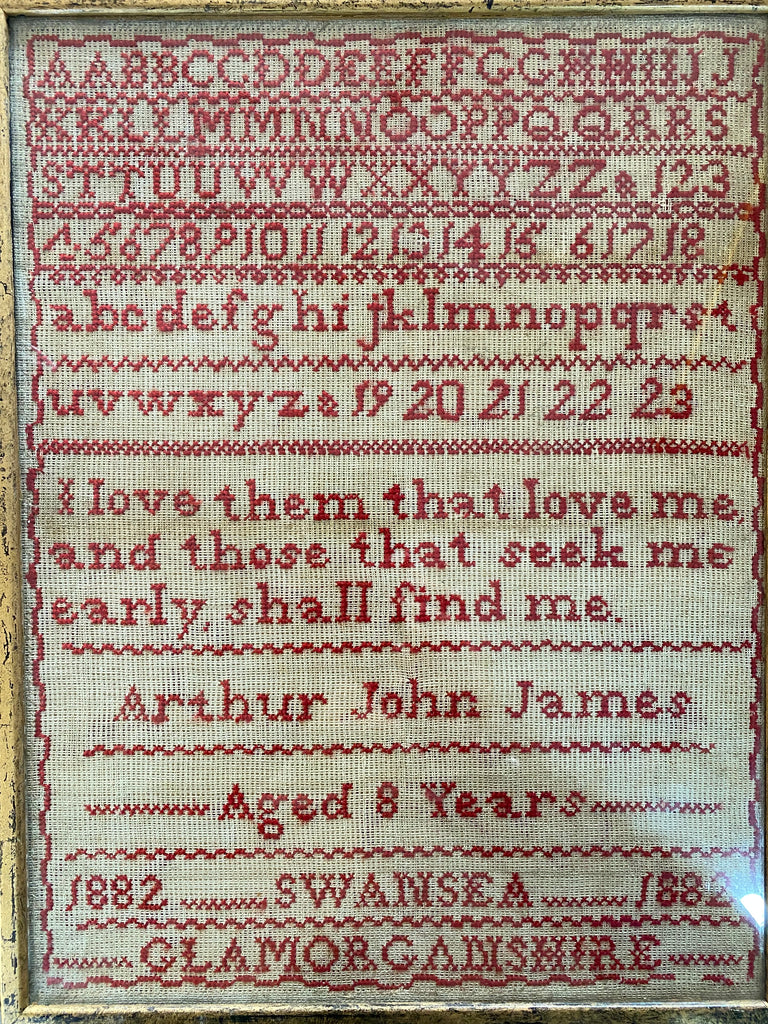 AABBCCDDEEFFGGHHIIJJ
KKLLMMNNOOPPQQRRS
STTUUVVWWXXYYZZ& 123
4 5 6 7 8 9 10 11 12 13 14 15 6 17 18
abcdefghijklmnopqrst
uvwxyz& 19 20 21 22 23
I love them that love me,
and those that seek me
early, shall find me.
Arthur John James
Aged 8 Years
1882 SWANSEA 1882
GLAMORGANSHIRE